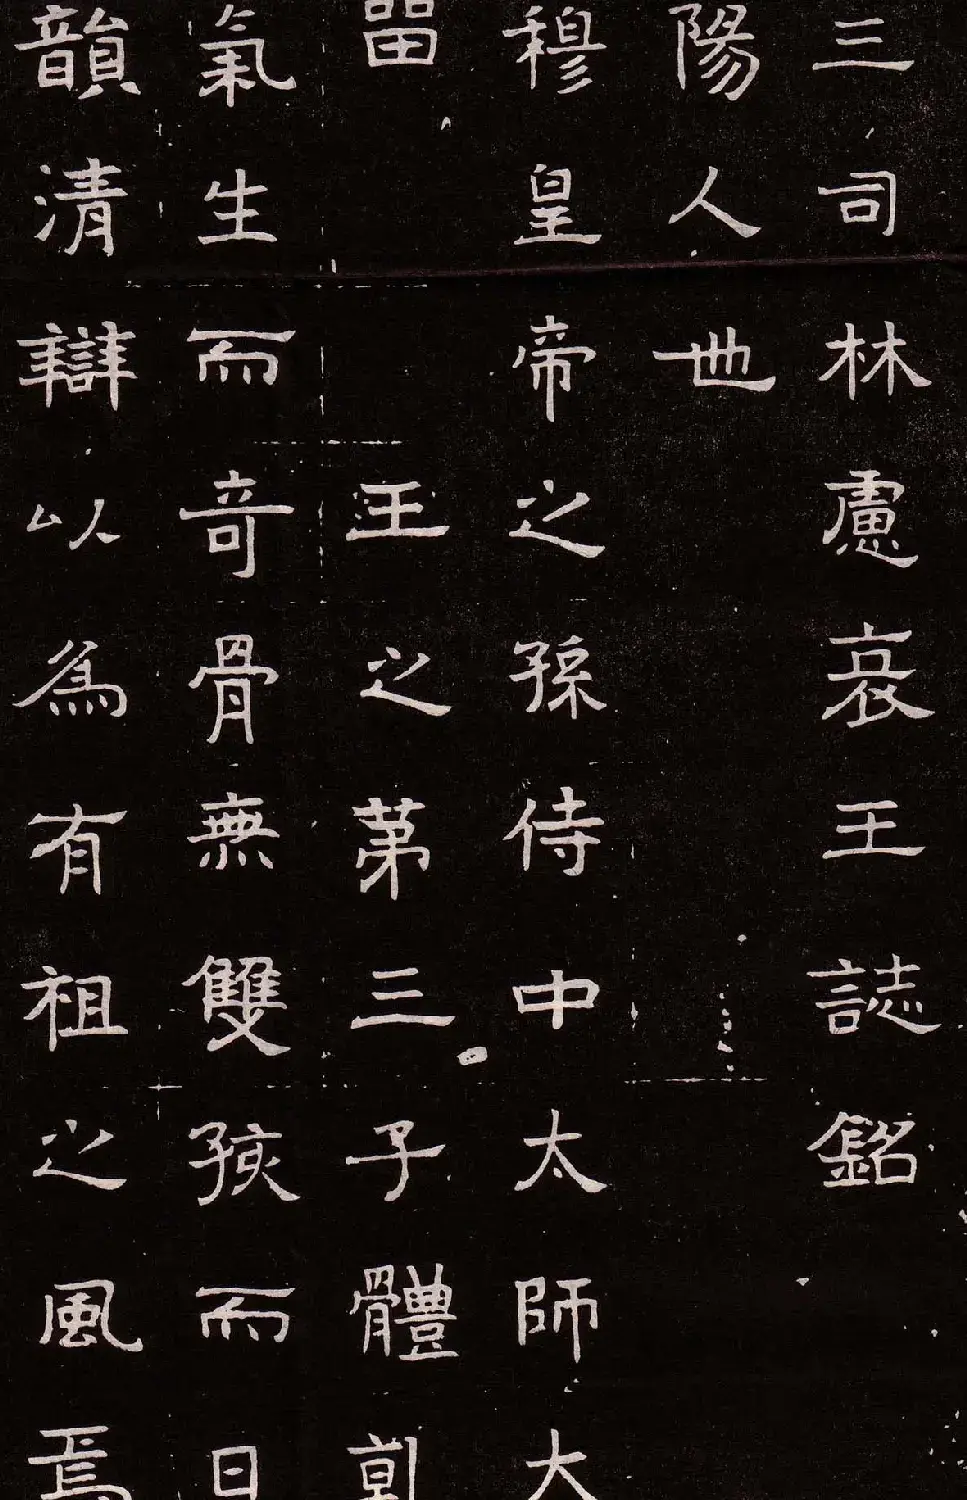 三司林慮哀王誌銘
陽人也
穆皇帝之孫侍中太師大
王之第三子體
氣生而奇骨無雙孩而日
韻清辯以為有祖之風焉